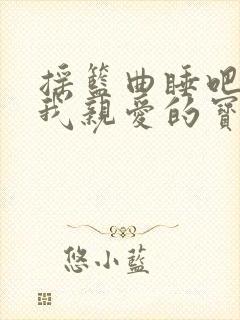 搖籃曲睡吧
我親愛的寶
悠小藍